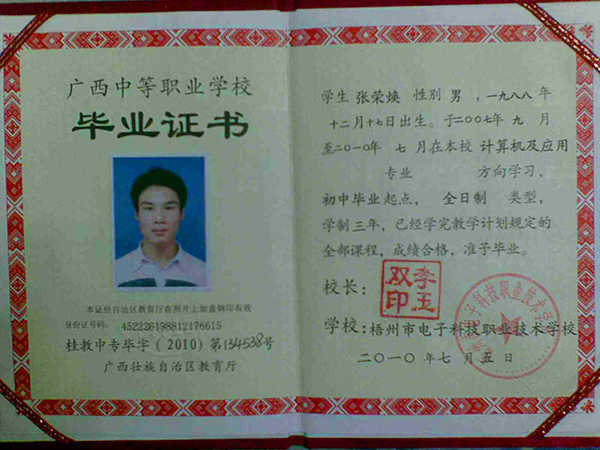 广西中等职业学校
毕业证书
本证经自治区教育厅在照片上加盖钢印有效
身份证号码: 452226198812176615
桂教中专毕字(2010)第134538号
广西壮族自治区教育厅
学生 张荣焕 性别 男 , 一九八八年
十二月十七日出生。于二〇〇七年 九 月
至二〇一〇年 七 月在本校 计算机及应用
专业 方向学习,
初中毕业起点, 全日制 类型,
学制三年,已经学完教学计划规定的
全部课程,成绩合格,准予毕业。
校长:
李玉双印
学校: 梧州市电子科技职业技术学校
二〇一〇年 七 月 五 日